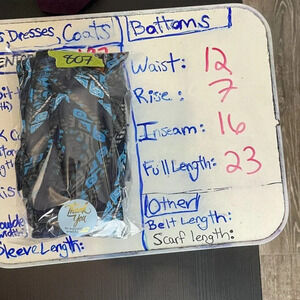 Dresses, Coats
Bottoms
807
Waist: 12
Rise: 7
Inseam: 16
Full Length: 23
Other
Belt Length:
Scarf length:
Sleeve Length: